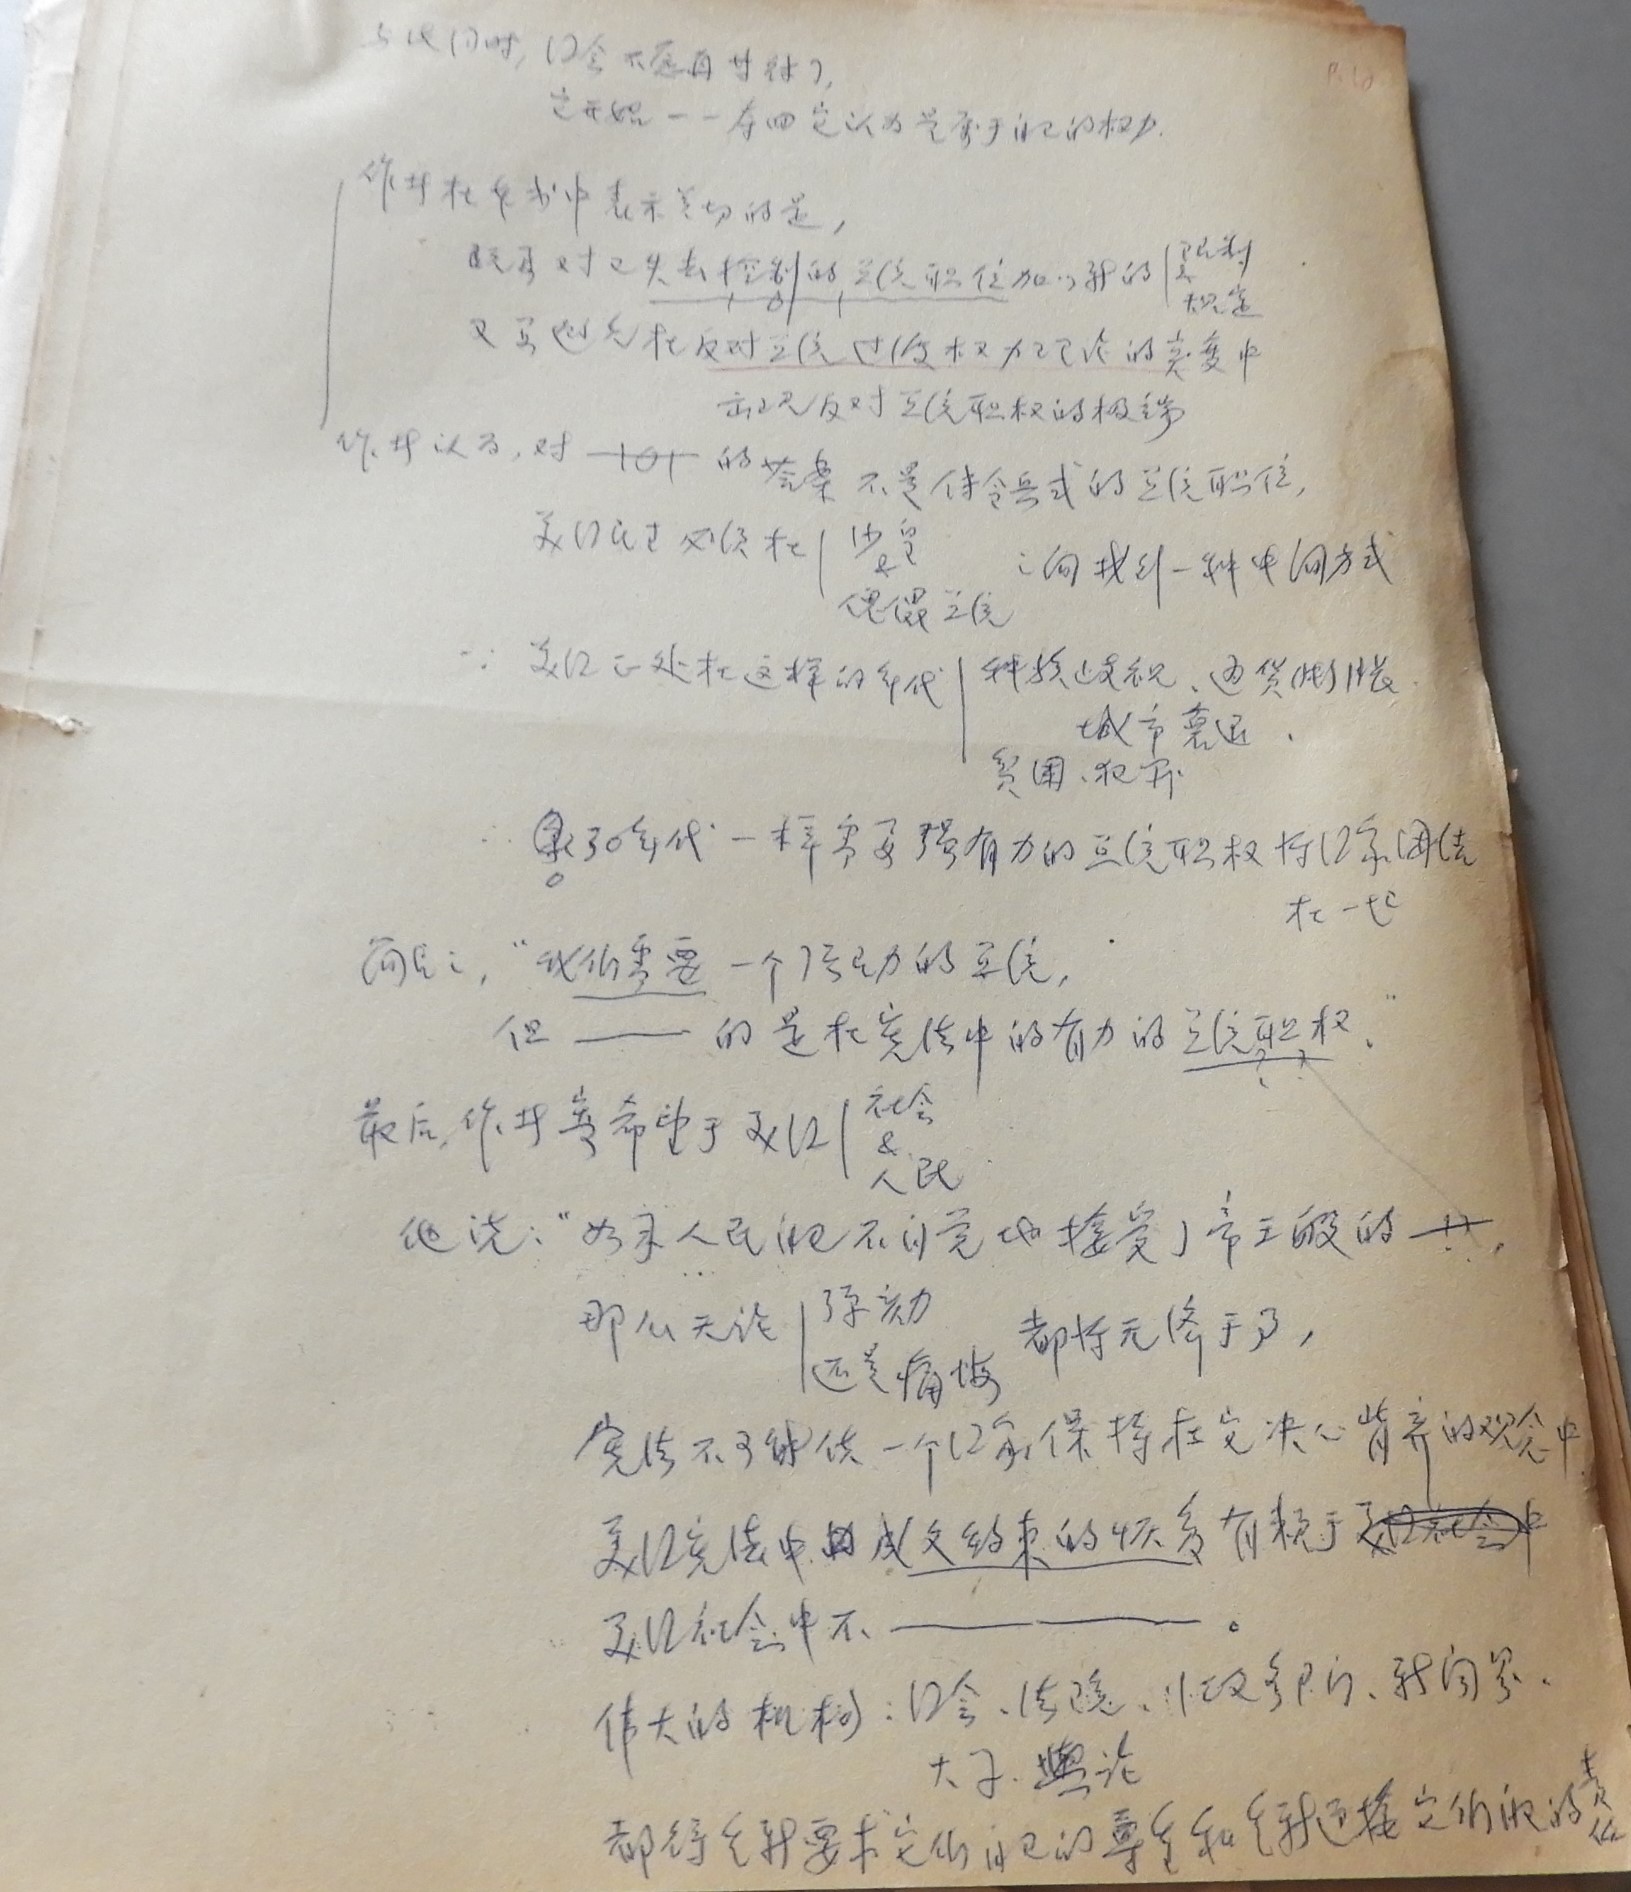 与此同时，囗会不愿再甘休了，
它开始一一夺回它认为是属于自己的权力．
作者在本书中表示关切的是，
既要对已失去控制的总统职位加以新的|限制
&
规定
又要避免在反对总统过度权力理论的突变中
出现反对总统职权的极端
作者认为，对 的答案不是传令兵式的总统职位，
美囗民主必须在|沙皇
&
傀儡总统
之间找到一种中间方式
∵ 美囗正处在这样的年代|种族歧视、通货膨胀
城市衰退、
贫困、犯罪
30年代一样需要强有力的总统职权将囗家团结
在一起
简言之，“我们需要一个强有力的总统，
但 —— 的是在宪法中的有力的总统职权．”
最后，作者寄希望于美囗|社会
&
人民
他说：“如果人民自己不自觉地接受了帝王般的
那么无论|弹劾
还是痛悔
都将无济于事，
宪法不可能使一个囗家保持在它决心背弃的观念中
美囗宪法中成文约束的恢复有赖于
美囗社会中不 ——— 。
伟大的机构：囗会、法院、行政部门、新闻界、
大学、舆论
都得重新要求它们自己的尊重和重新迎接它们自己的责任